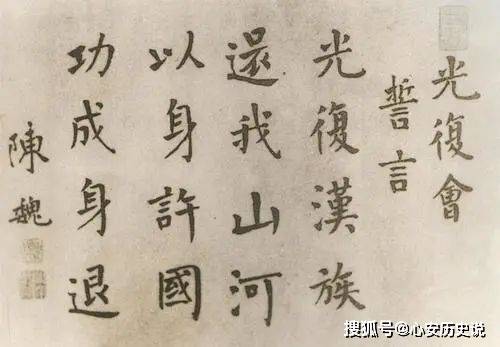 光復會
誓言
光復漢族
還我山河
以身許國
功成身退
陳魏
搜狐号@心安历史说